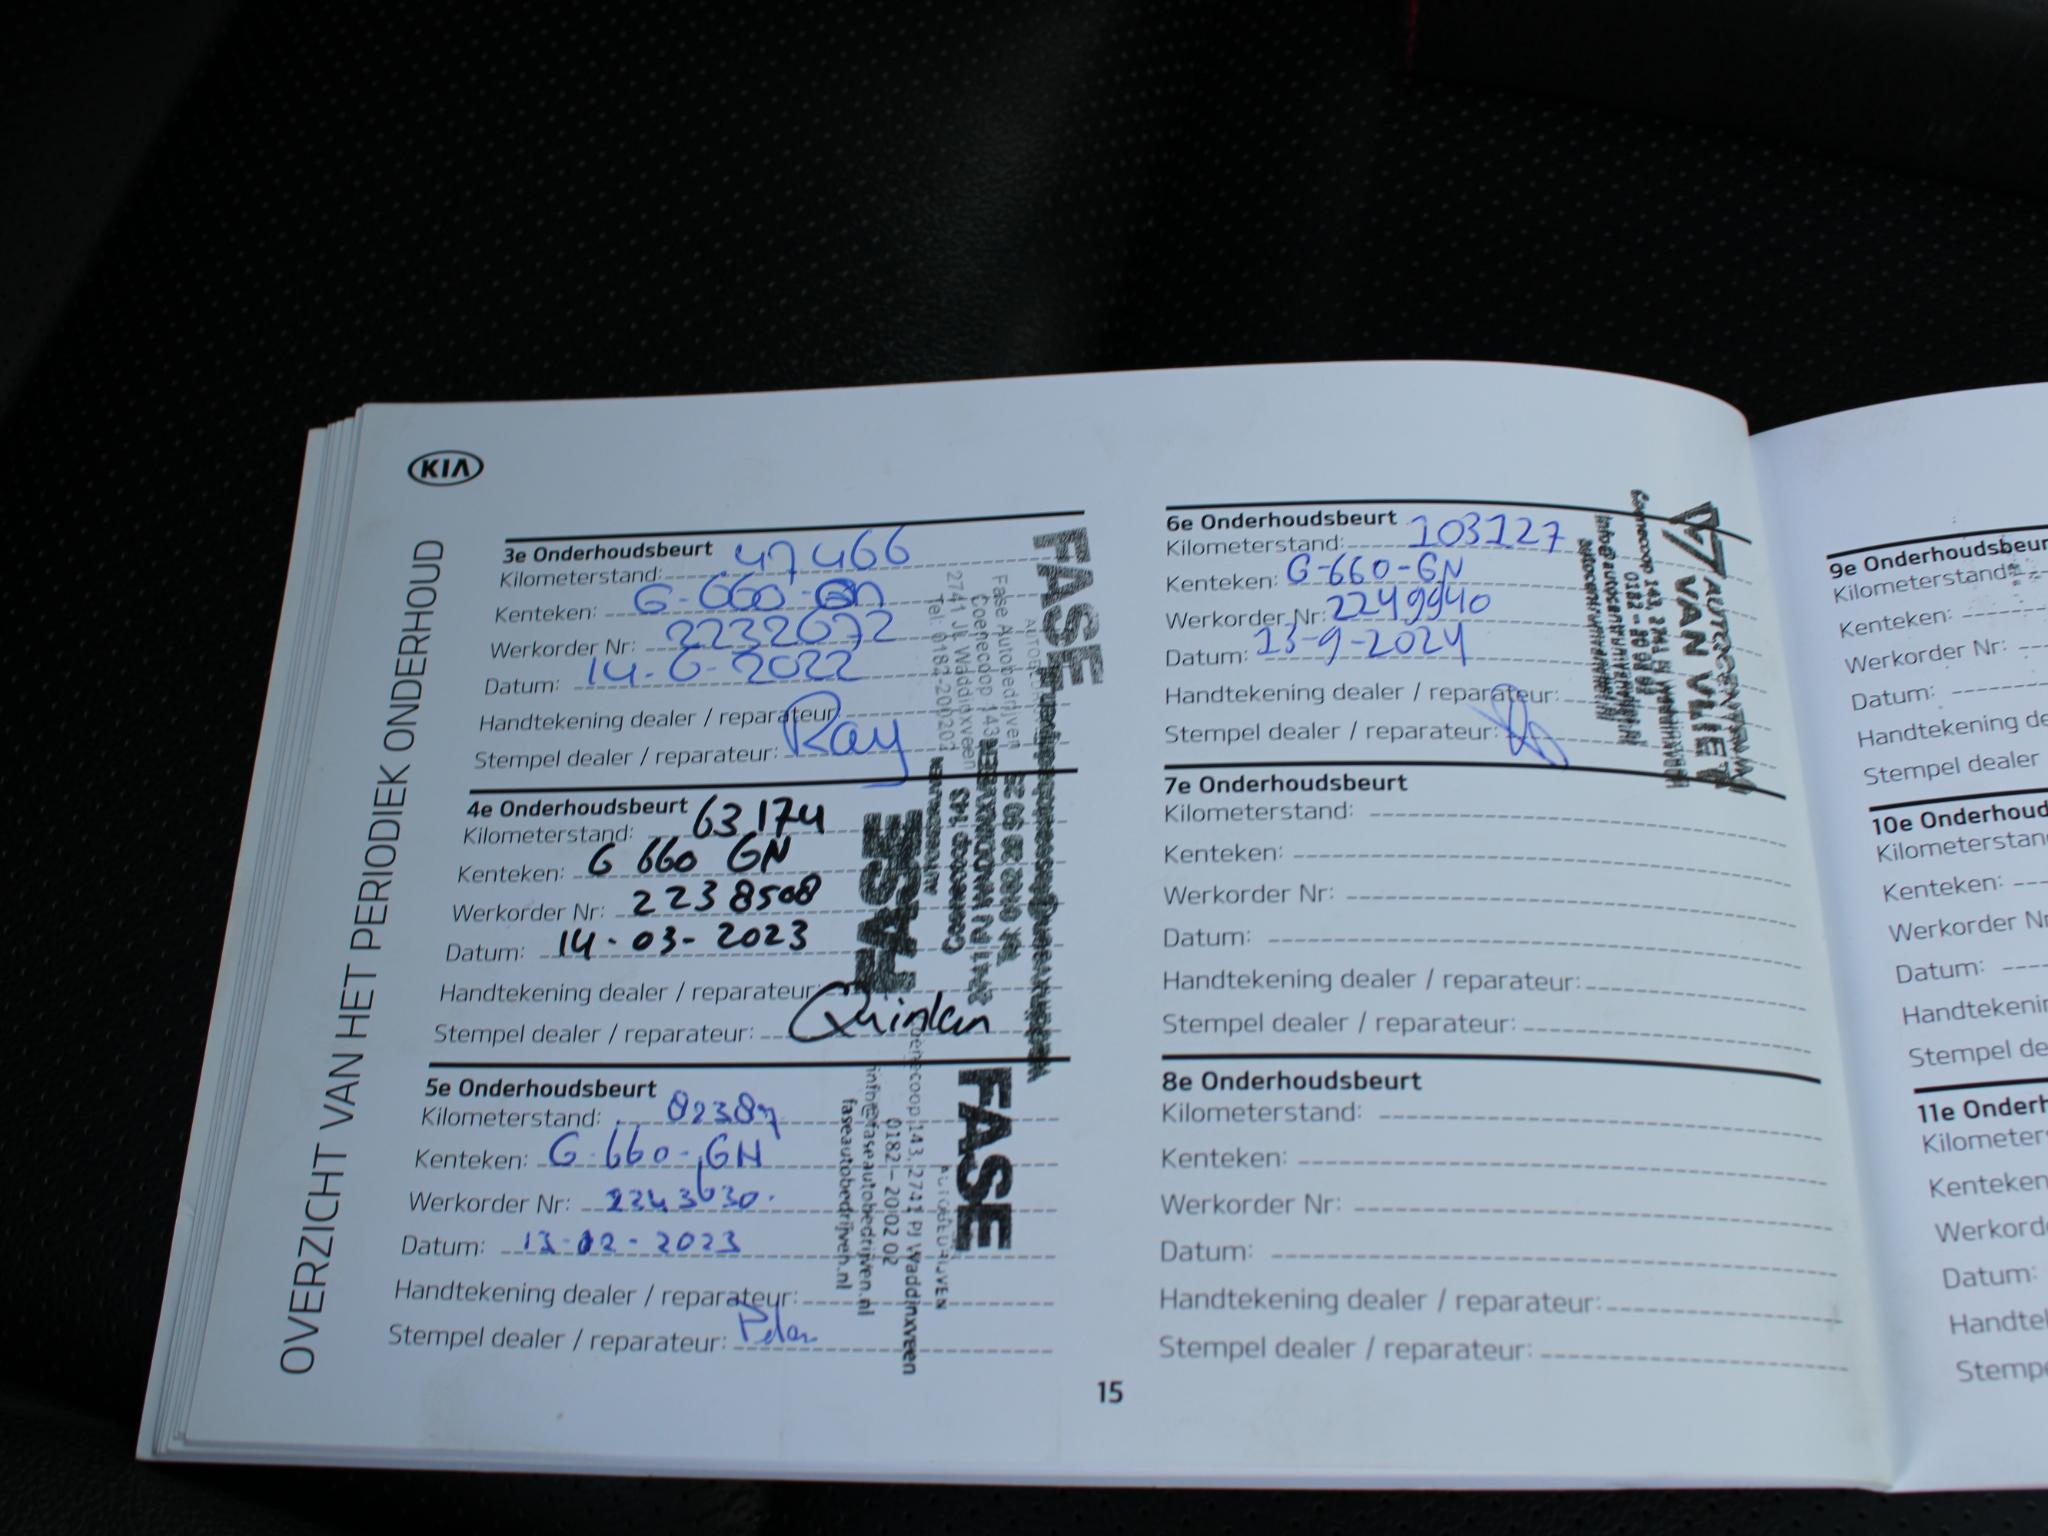 KIA
OVERZICHT VAN HET PERIODIEK ONDERHOUD
3e Onderhoudsbeurt
Kilometerstand: 47466
Kenteken: G-660-GN
Werkorder Nr: 2232672
Datum: 14-6-2022
Handtekening dealer / reparateur:
Stempel dealer / reparateur: Ray
FASE
Fase Autobedrijven
Coenecoop 143
2741 PJ Waddinxveen
Tel: 0182-200202
4e Onderhoudsbeurt
Kilometerstand: 63174
Kenteken: G 660 GN
Werkorder Nr: 2238508
Datum: 14-03-2023
Handtekening dealer / reparateur:
Stempel dealer / reparateur: Quinlan
FASE
5e Onderhoudsbeurt
Kilometerstand: 82387
Kenteken: G-660-GN
Werkorder Nr: 2243630.
Datum: 13-12-2023
Handtekening dealer / reparateur:
Stempel dealer / reparateur:
FASE
AUTOBEDRIJVEN
Coenecoop 143, 2741 PJ Waddinxveen
0182 - 20 02 02
info@faseautobedrijven.nl
faseautobedrijven.nl
6e Onderhoudsbeurt
Kilometerstand: 103127
Kenteken: G-660-GN
Werkorder Nr: 2249940
Datum: 13-9-2024
Handtekening dealer / reparateur:
Stempel dealer / reparateur:
AUTOCENTRUM
VAN VLIET
7e Onderhoudsbeurt
Kilometerstand:
Kenteken:
Werkorder Nr:
Datum:
Handtekening dealer / reparateur:
Stempel dealer / reparateur:
8e Onderhoudsbeurt
Kilometerstand:
Kenteken:
Werkorder Nr:
Datum:
Handtekening dealer / reparateur:
Stempel dealer / reparateur:
15
9e Onderhoudsbeur
Kilometerstand:
Kenteken:
Werkorder Nr:
Datum:
Handtekening de
Stempel dealer
10e Onderhoud
Kilometerstan
Kenteken:
Werkorder Nr
Datum:
Handtekenin
Stempel de
11e Onderh
Kilometer
Kenteken
Werkord
Datum:
Handte
Stemp